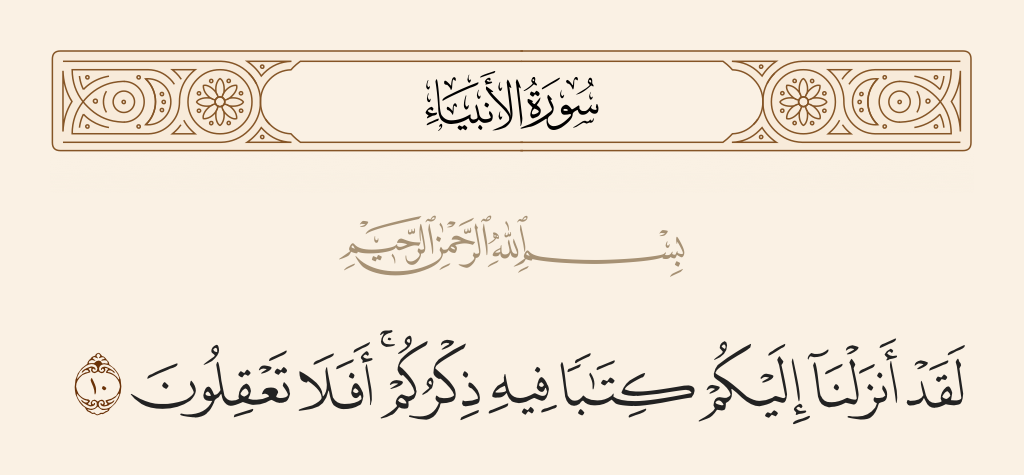 سُورَةُ الأَنبِيَاءِ
بِسْمِ ٱللَّهِ ٱلرَّحْمَٰنِ ٱلرَّحِيمِ
لَقَدْ أَنزَلْنَآ إِلَيْكُمْ كِتَٰبًا فِيهِ ذِكْرُكُمْ ۚ أَفَلَا تَعْقِلُونَ ١٠